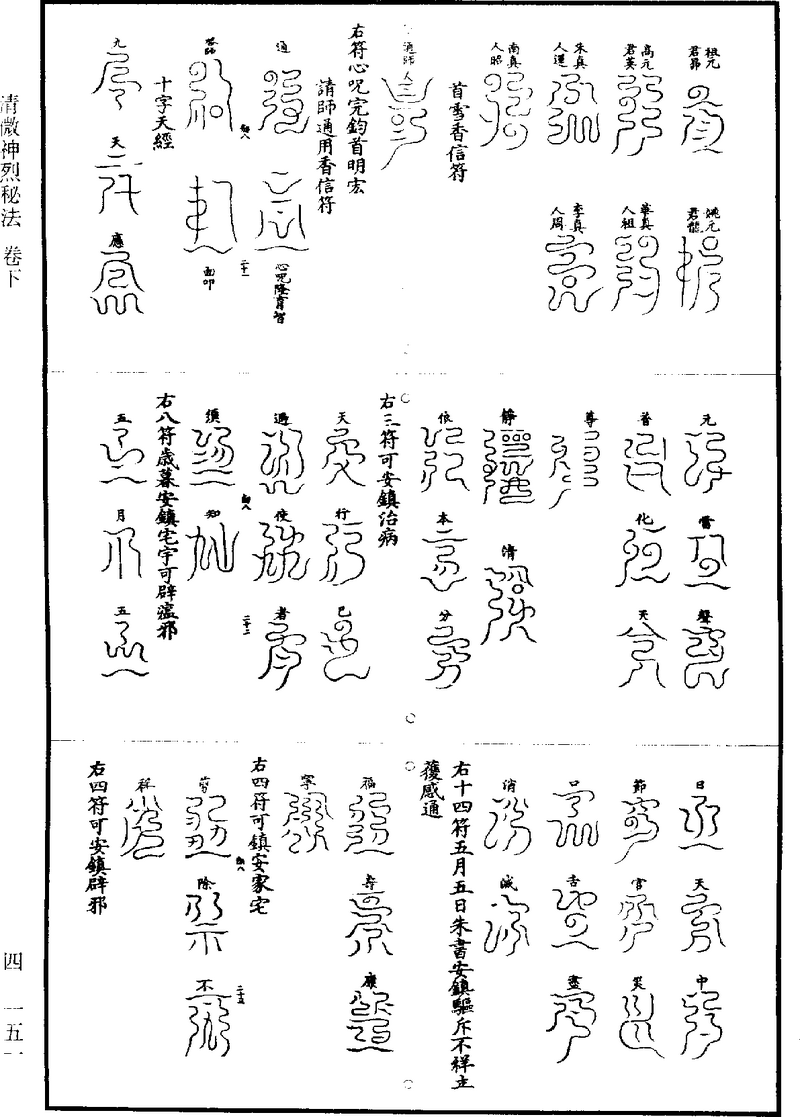 清微神烈秘法 卷下
祖元君昴
姚元君能
高元君英
華真人祖
朱真人運
李真人周
南真人昭
首雪香信符
通師人
右符心呪完鈞首明宏
請師通用香信符
通
心咒隆育智
面叩
十字天經
九
天
應
元
雷
聲
普
化
天
尊
靜
清
依
本
分
右三符可安鎮治病
天
行
已
過
使
者
須
知
右八符歲暮安鎮宅宇可辟瘟邪
五
月
五
日
天
中
節
官
災
口
舌
盡
消
滅
右十四符五月五日朱書安鎮驅斥不祥立
獲感通
福
壽
康
寧
右四符可鎮安家宅
剪
除
不
祥
右四符可安鎮辟邪
四 一五一